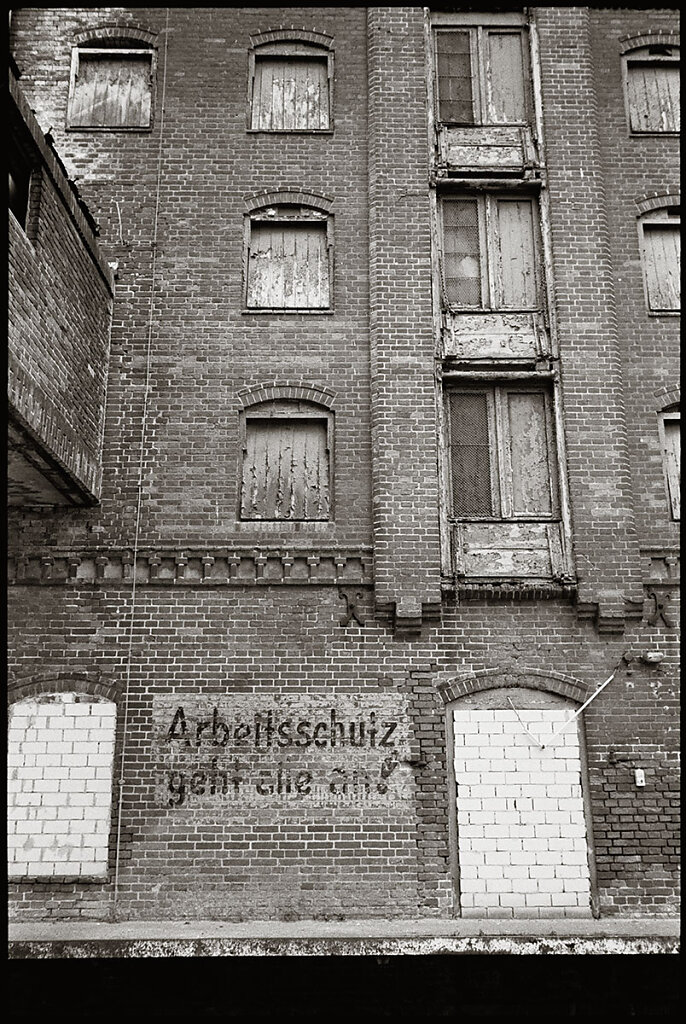 Arbeitsschutz
geht alle an!